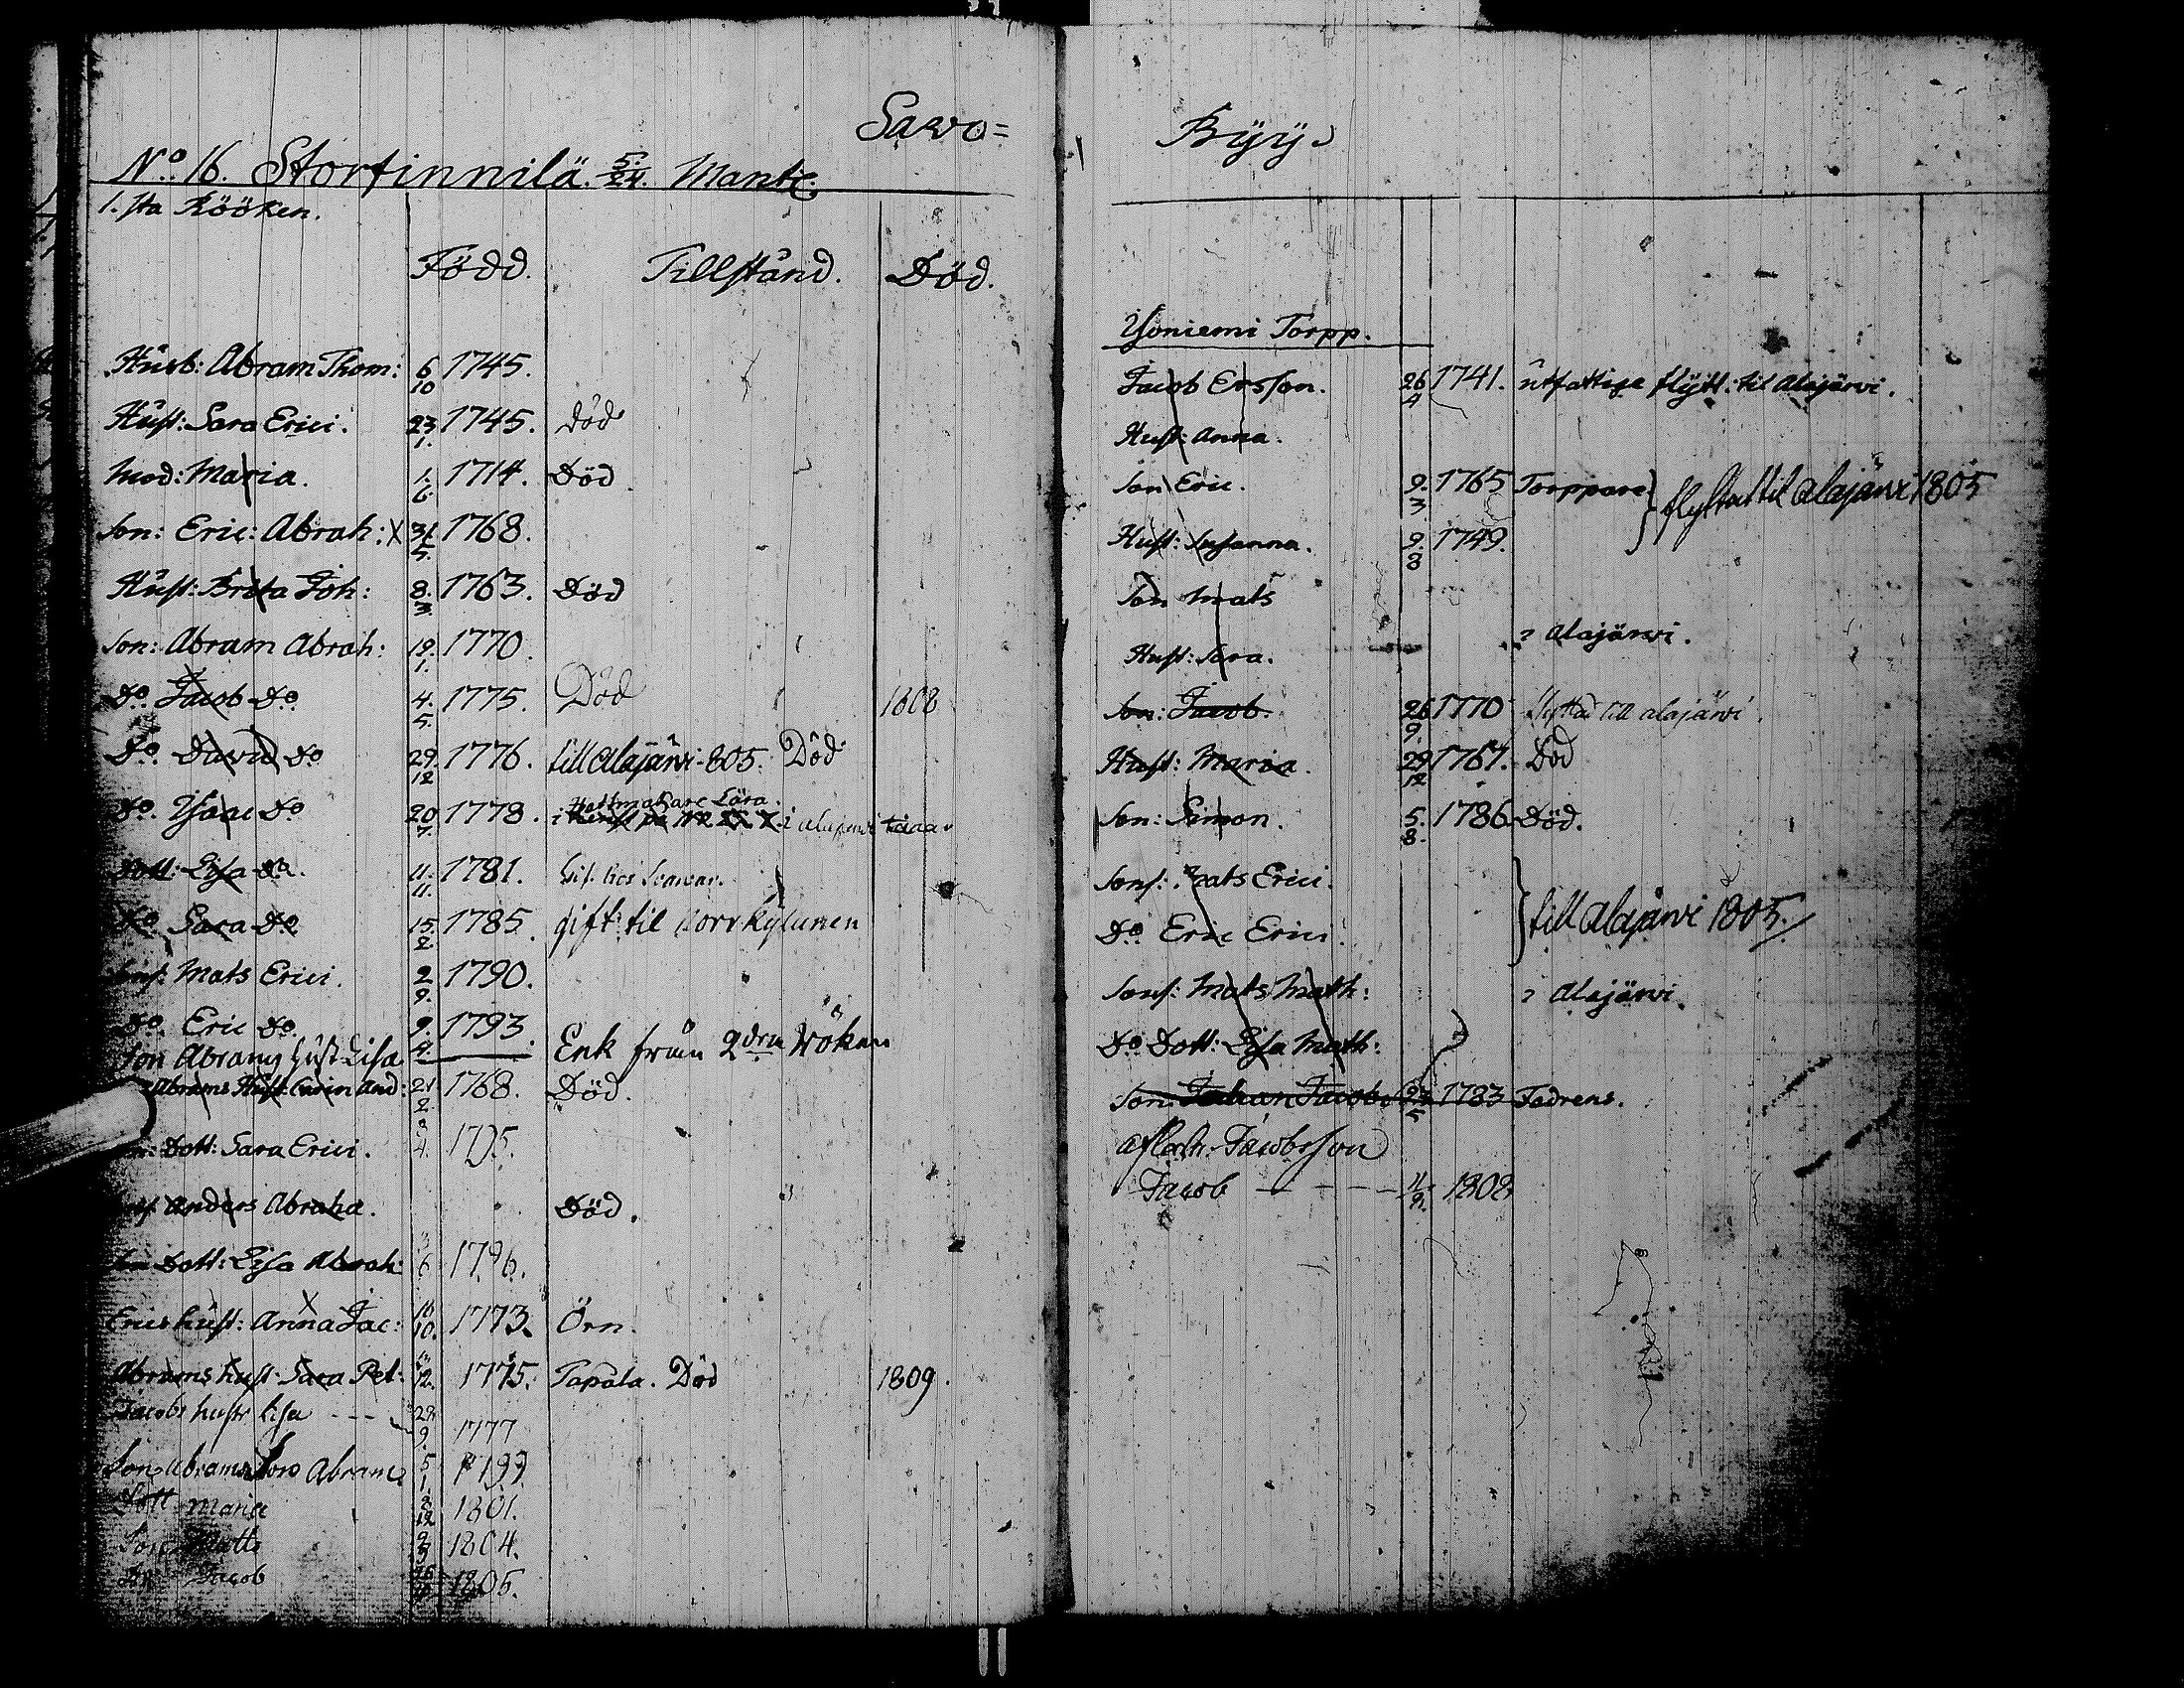 Savo=
No: 16. Storfinnilä. 5/24. Mantl:
1. sta Rööken.
Född. Tillstånd. Död.
Husb: Abram Thom: 6/10 1745.
Hust: Sara Erici. 23/1. 1745. Död
Mod: Maria. 1./6. 1714. Död
Son: Eric: Abrah: X 31/5. 1768.
Hust: Brita Joh: 8./3. 1763. Död
Son: Abram Abrah: 19./1. 1770.
Do. Jacob Do. 4./5. 1775. Död 1808
Do. David Do 29./12 1776. till Alajärvi 805. Död
Hattmakare Lära.
Do. Isaac Do 20/7. 1778. i alajärvi
Dott: Lisa Do. 11./11. 1781.
Do Sara Do 15/2. 1785. gift til
Sons. Mats Erici. 2/9. 1790.
Do. Eric Do. 9./4. 1793.
Son Abrams Hust Lisa Enk från 2dra Röken
Abrams Hust: Carin And: 21/2. 1768. Död.
Dott: Sara Erici. 4. 1795.
Anders Abraha. Död.
Son Dott: Lisa Abrah: 6 1796.
Erics hust: Anna Jac: 16/10. 1773. Örn.
Abrams hust: Sara Pet: 12. 1775. Tapala. Död 1809.
Jacobs hustr Lisa --- 28/9. 1777
Son Abrams Son Abram 5/1. 1799
Dott Maria 8/12 1801.
Son Matts 9 1804.
Do Jacob 1805.
Byy.
Yoniemi Torpp.
Jacob Ersson. 26/4 1741. utfattige flytt: til Alajärvi.
Hust: Anna.
Son Eric. 9./3. 1765 Torppare } flyttat til Alajärvi 1805
Hust: Susanna. 9./8 1749.
Son Mats
? Alajärvi.
Hust: Sara.
Son: Jacob. 26/9. 1770 flyttad till alajärvi.
Hust: Maria. 29/12 1767. Död
Son: Simon. 5./8. 1786 Död.
Sons: Mats Erici.
Do Eric Erici. } till Alajärvi 1805.
Sons: Mats Math: ? Alajärvi.
Do Dott: Lisa Math:
Son: Johan Jacobs 23/5 1783 Fadrens.
Afsked. Jacobsson
Jacob --- 11/9. 1808